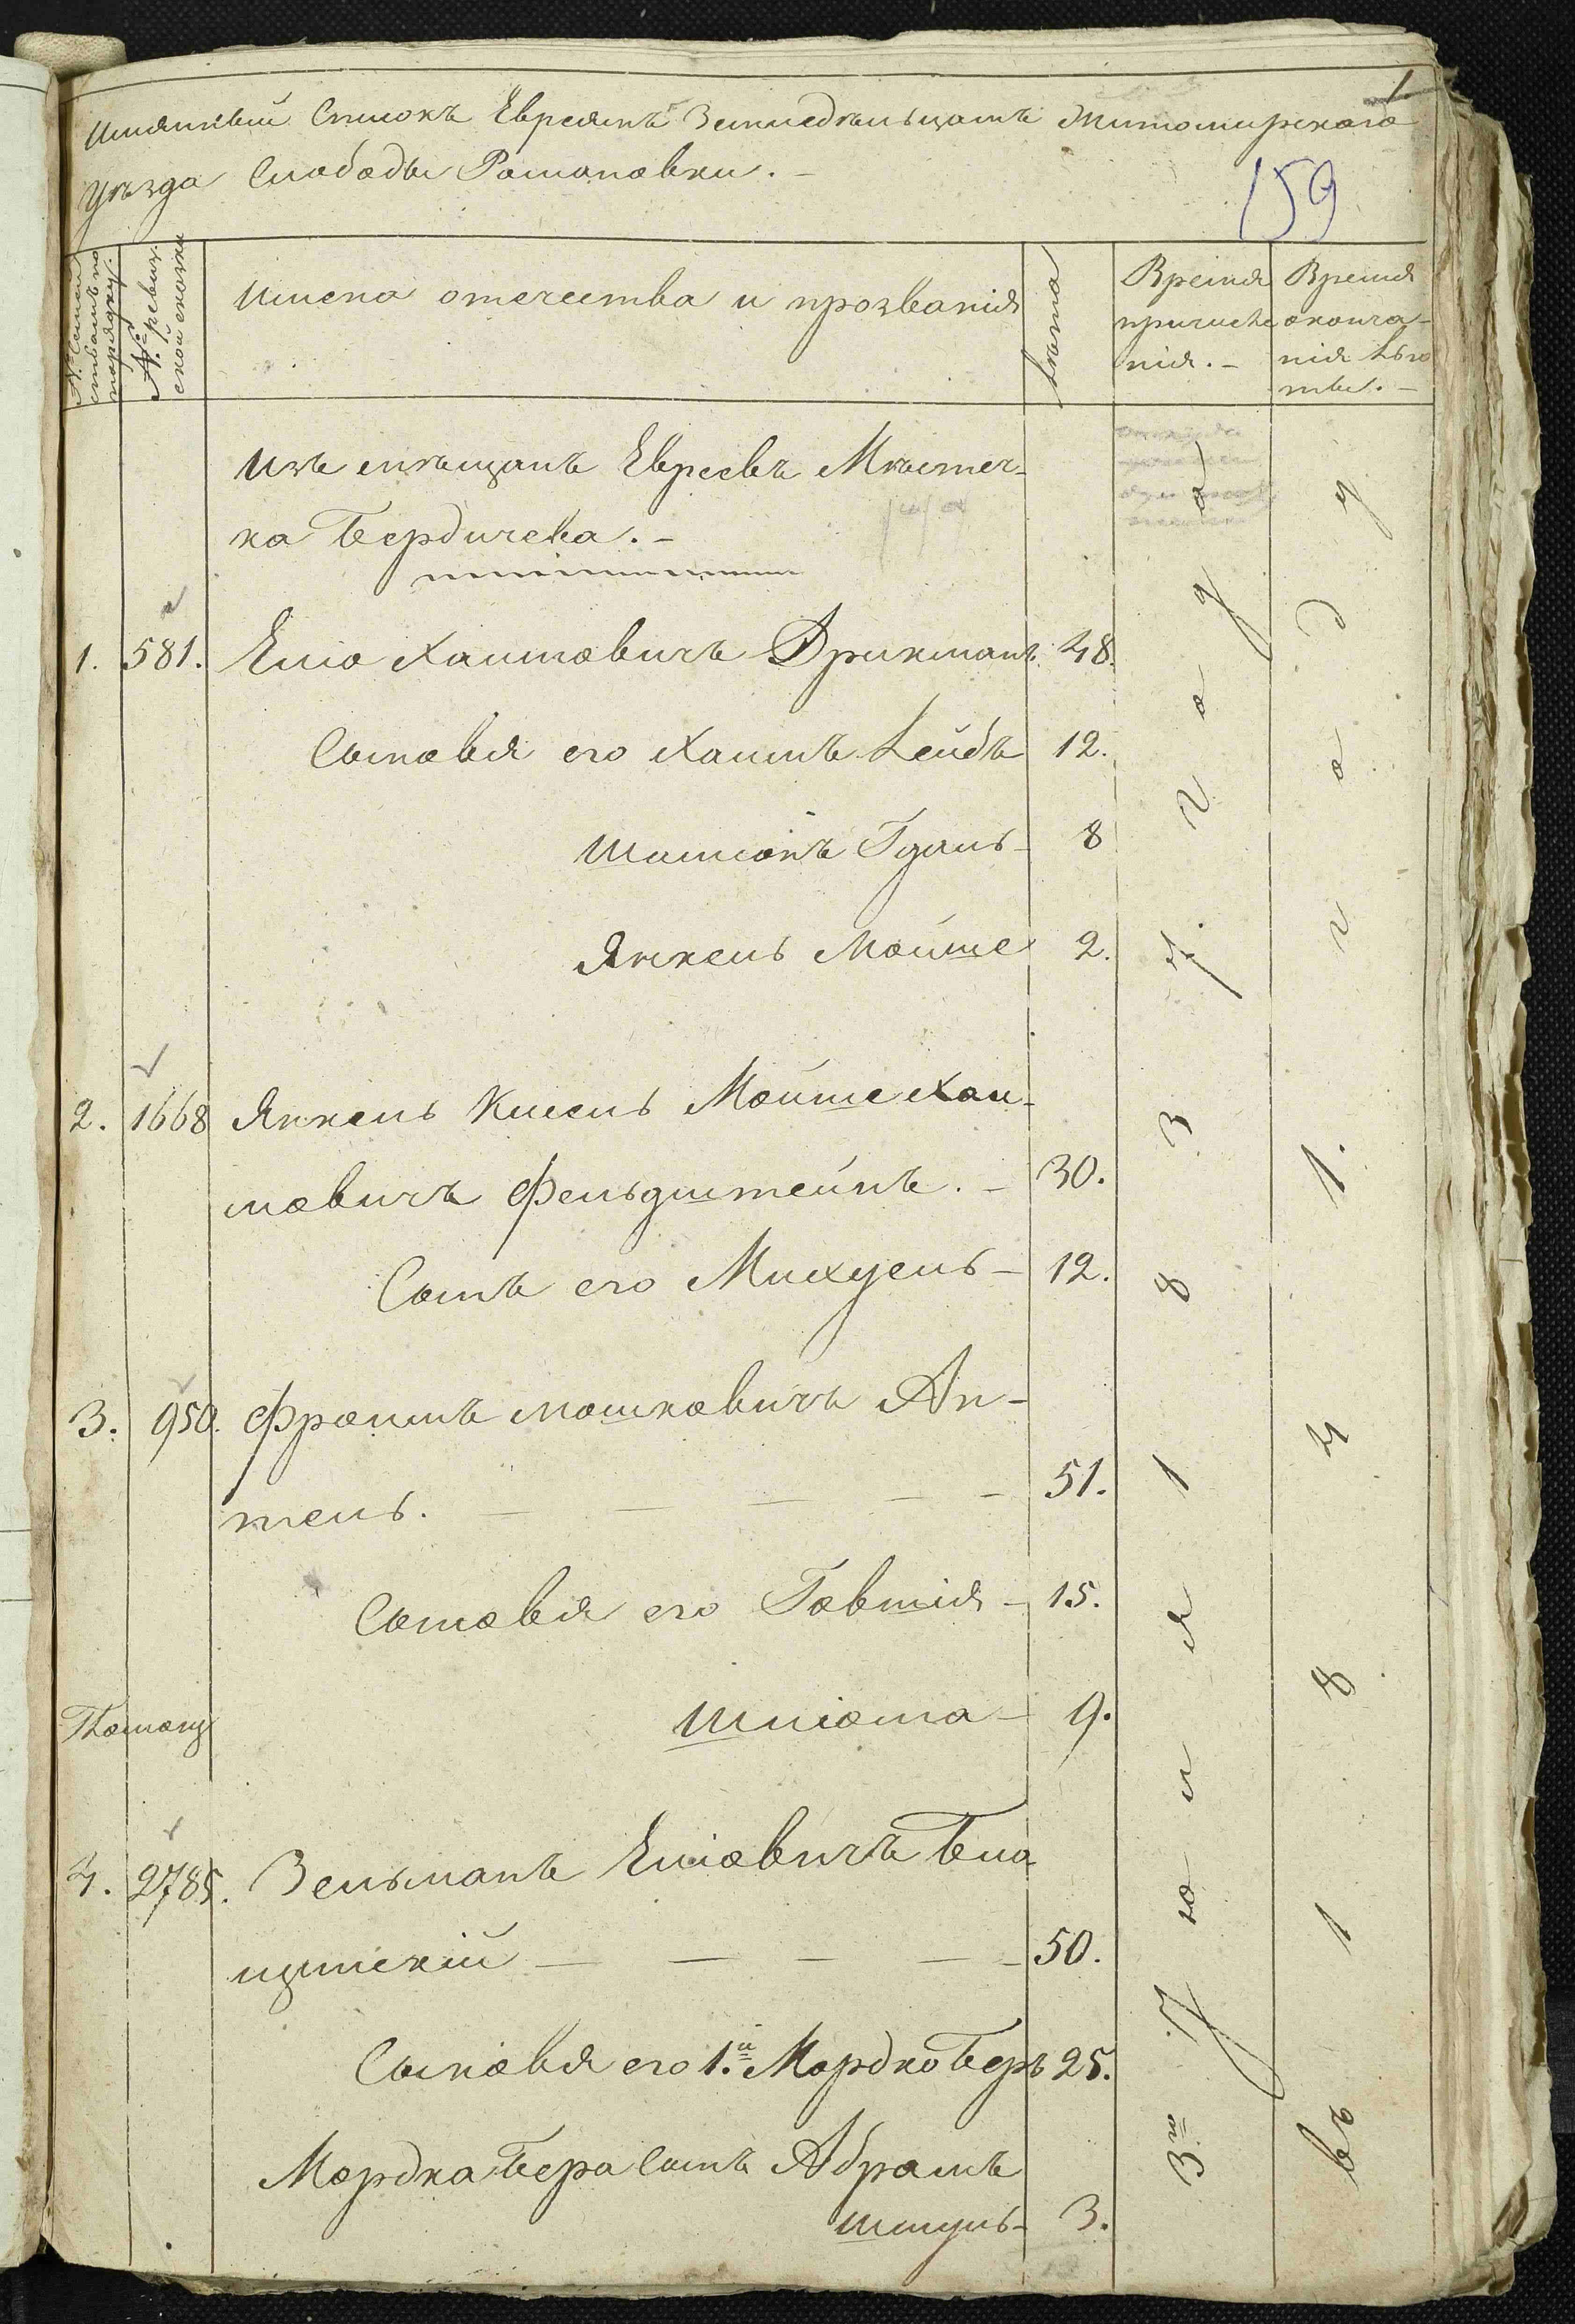 1
Имянный Списокъ Евреямъ Земледѣльцамъ Житомирскаго
уѣзда Слободы Романовки. –
159
№ Семей
ствамъ по
порядку.
№ 1й ревиз
ской сказки
Имена отечества и прозванія
Лѣта
Время
причисле
нія. –
Время
оконча–
нія Льго
ты. –
Изъ мѣщанъ Евреевъ Мѣстеч–
ка Бердичева. –
1. 581. Елио Хаимовичъ Дрикманъ 48.
Сыновья его Хаимъ Лейбъ 12.
Шимсонъ Гдаль – 8
Янкель Мойше 2.
2. 1668 Янкель Кисель Мойше Хаи–
мовичъ Фельдштейнъ. – 30.
Сынъ его Михуель – 12.
3. 950. Фроимъ Мошковичъ Ап–
тель. – 51.
Сыновья его Говшія – 15.
Шліома – 9.
4. 2785. Зельманъ Еліовичъ Бла
щинскій – 50.
Сыновья его 1.й Мордко Беръ 25.
Мордка Бера Сынъ Абрамъ
Шмуль – 3.
3го Іюля 1837. года
въ 1841. году